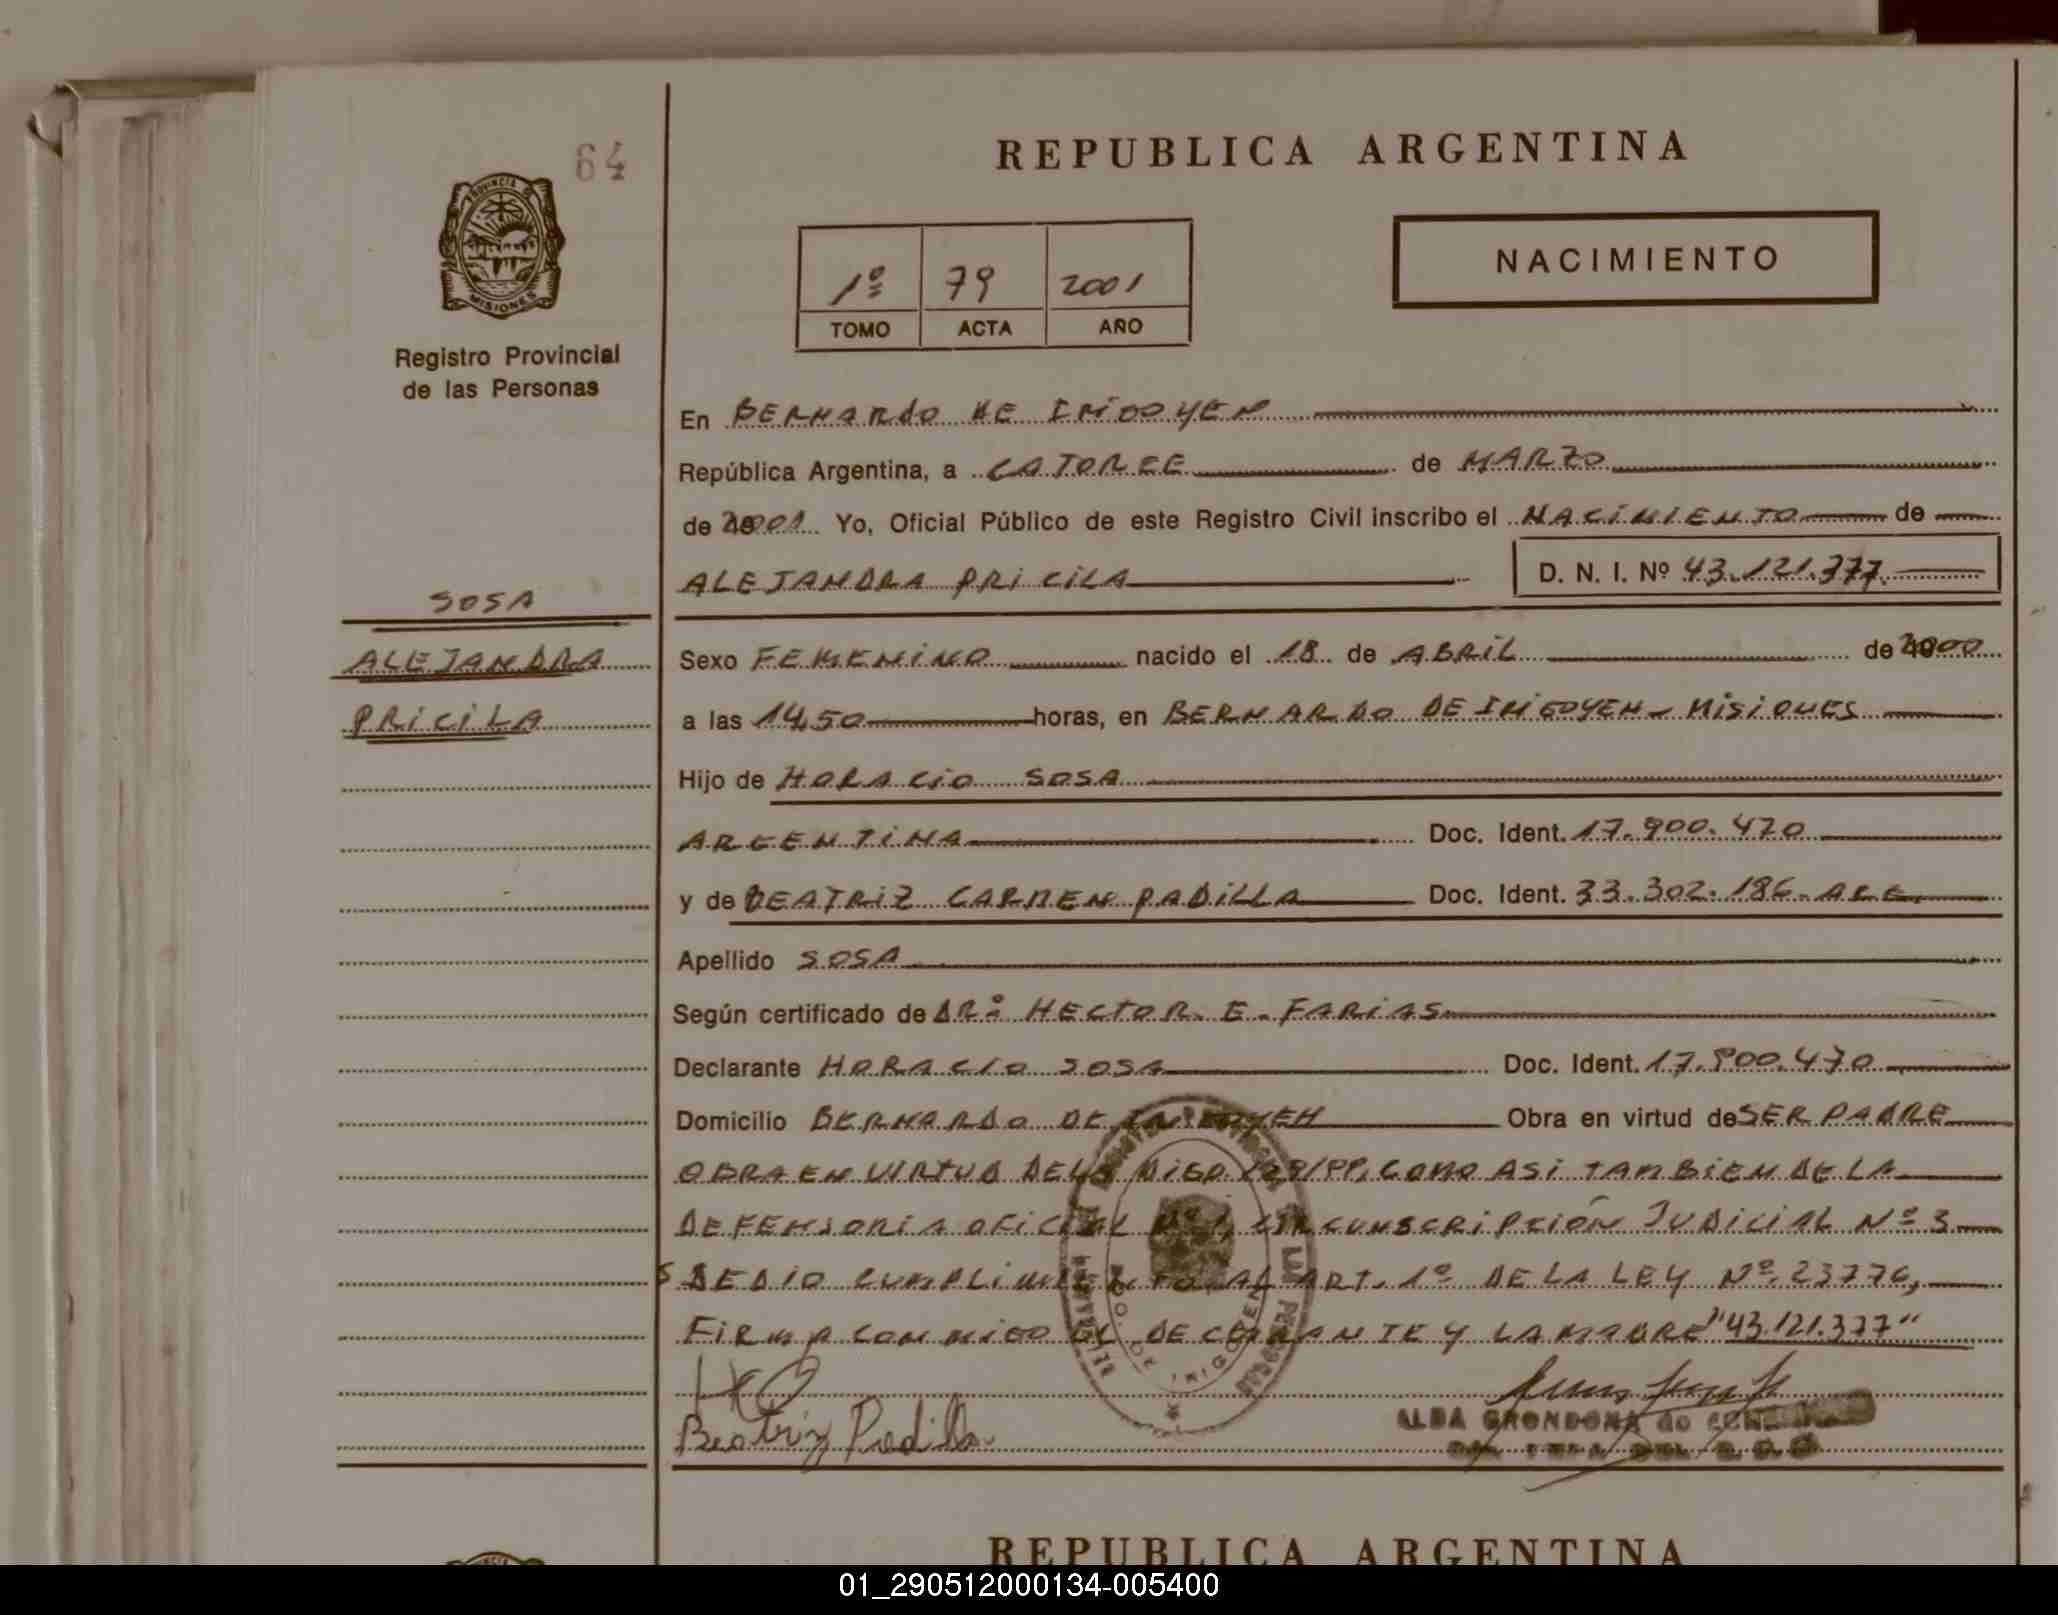 64
REPUBLICA ARGENTINA
PROVINCIA DE
MISIONES
Registro Provincial
de las Personas
NACIMIENTO
1º 79 2001
TOMO ACTA AÑO
En BERNARDO DE IRIGOYEN
República Argentina, a CATORCE de MARZO
de 2001 Yo, Oficial Público de este Registro Civil inscribo el NACIMIENTO de
ALEJANDRA PRICILA D. N. I. Nº 43.121.377.
SOSA
ALEJANDRA
PRICILA
Sexo FEMENINO nacido el 18 de ABRIL de 2000
a las 14,50 horas, en BERNARDO DE IRIGOYEN - MISIONES
Hijo de HORACIO SOSA
ARGENTINA Doc. Ident. 17.900.470
y de BEATRIZ CARMEN PADILLA Doc. Ident. 33.302.186-ARG.
Apellido SOSA
Según certificado de DR: HECTOR E. FARIAS
Declarante HORACIO SOSA Doc. Ident. 17.900.470
Domicilio BERNARDO DE IRIGOYEN Obra en virtud de SER PADRE
OBRA EN VIRTUD DE LA DISP. COMO ASI TAMBIEN DE LA
DEFENSORIA OFICIAL Nº 1, CIRCUNSCRIPCIÓN JUDICIAL Nº 3
SE DIO CUMPLIMIENTO AL ART. 1º DE LA LEY Nº 23776,
FIRMA CONMIGO EL DECLARANTE Y LA MADRE "43.121.377"
Beatriz Padilla
ALBA GRONDONA de
REPUBLICA ARGENTINA
01_290512000134-005400